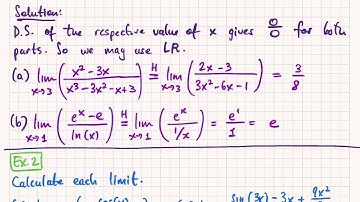 Solution:
D.S. of the respective value of x gives 0/0 for both
parts. So we may use LR.
(a) lim x→3 (x² - 3x / x³ - 3x² - x + 3) H= lim x→3 (2x - 3 / 3x² - 6x - 1) = 3/8
(b) lim x→1 (eˣ - e / ln(x)) H= lim x→1 (eˣ / 1/x) = e¹/1 = e
Ex. 2
Calculate each limit.
sin(3x) - 3x + 9x²